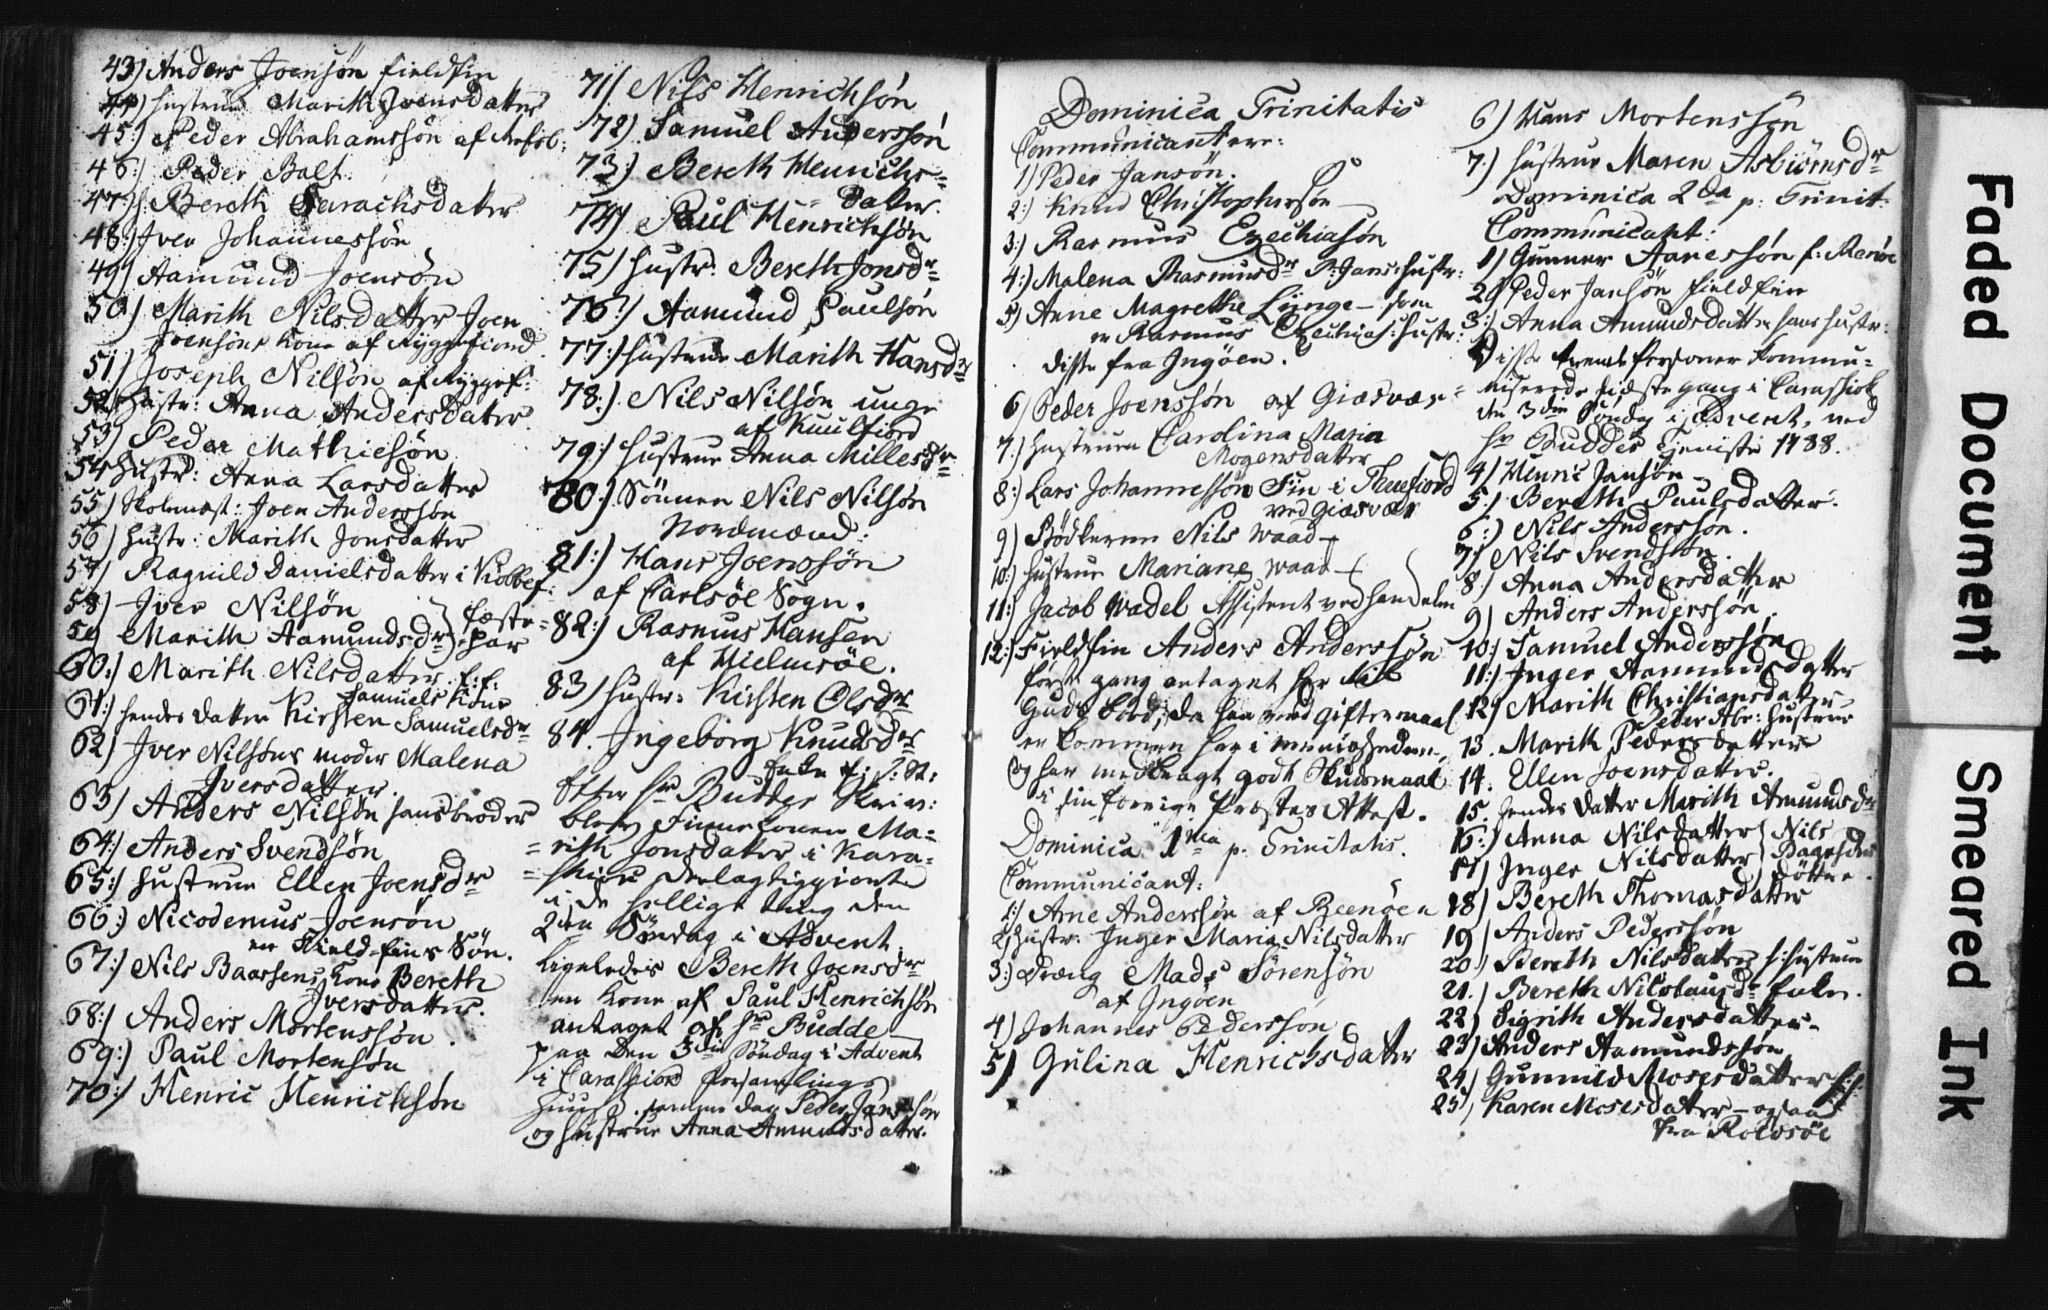 43) Anders Joensøn fieldfin
44) hustrue Marith Joensdatter
45) Peder Abrahamssøn af Refsb:
46:) Peder Balt.
47) Bereth Sarachsdatter
48:) Iver Johannessøn
49) Aamund Joensøn
50) Marith Nilsdatter Joen
Joensøns Kone af Ryggefiord
51) Joseph Nilsøn af Ryggef:
52) hustr: Anna Andersdatter
53) Peder Mathiesøn
54 hustr: Anna Larsdatter
55) Skolemest: Joen Anderssøn
56) hustr: Marith Jonsdatter
57) Ragnild Danielsdatter i Kobbef:
58) Iver Nilsøn } fæste-
59 Marith Aamundsdr } par
60:) Marith Nilsdatter f:f:
Samuels Kone
61:) hendes datter Kirsten Samuelsdr
62) Iver Nilsøns moder Malena
Iversdatter.
63) Anders Nilsøn hans broder
64:) Anders Svendsøn
65:) hustrue Ellen Joensdr
66:) Nicodemus Joensøn
en Field-fins Søn.
67:) Nils Baarsens Kone Bereth
Iversdatter.
68:) Anders Mortenssøn.
69:) Paul Mortensøn
70:) Henric Henrichsøn
71) Nils Henrichsøn
72) Samuel Anderssøn
73:) Bereth Henrichs=
= datter.
74) Paul Henrichsøn
75) hustr: Bereth Jonsdr
76:) Aamund Paulsøn
77:) hustrue Marith Hansdr
78:) Nils Nilsøn unge
af Kuulfiord
79:) hustrue Anna Millesdr
80:) Sønnen Nils Nilsøn
Nordmænd:
81:) Hans Joenssøn
af Carlsøe Sogn.
82:) Rasmus Hansen
af Hielmsøe.
83) hustr: Kirsten Olsdr
84. Ingeborg Knudsdr
Enke
Efter Hr Buddes Skriv:
blev Finnekonen Ma=
= rith Jonsdatter i Kara=
= skiou deelagtiggiort
i de hellige ting den
2den Søndag i Advent.
Ligeledes Bereth Joensdr
en Kone af Paul Henrichsøn
antaget af Hr Budde
paa Den 3die Søndag i Advent
i Caraskiou forsamlings
huus. samme dag Peder Janssøn
og hustrue Anna Amundsdatter.
Dominica Trinitatis
Communicantere:
1) Peder Jansøn.
2:) Knud Christophersøn
3:) Rasmus Ezechiasøn
4:) Malena Rasmusdr P: Jans: hustr:
5) Anne Magrethe Lynge – som
er Rasmus Ezechias: hustr:
disse fra Ingøen.
6) Peder Joenssøn af Giæsvær
7.) hustruen Carolina Maria
Mogensdatter
8:) Lars Johannessøn Fin i Tuefiord
ved Giæsvær
9) Bødkeren Nils Waad
10:) hustrue Mariane Waad
11:) Jacob Wadel Assistent ved handelen
12:) Fieldfin Anders Anderssøn
første gang antaget her til
Guds bord, da han med giftermaal
er kommen her i menigheden,
og har medbragt godt Skudsmaal
i sin forrige Præstes Attest.
Dominica 1ma p. Trinitatis.
Communicant:
1:) Arne Anderssøn af Reenøen
2) hustr: Inger Maria Nilsdatter
3:) Dreng Mads Sørensøn
af Ingøen
4) Johannes Pederssøn
5) Gulina Henrichsdatter
6) Hans Mortenssøn
7:) hustrue Maren Asbiørnsdr
Dominica 2da p: Trinit:
Communicant:
1) Gunner Aanessøn f: Renøe
2) Peder Jansøn fieldfin
3:) Anna Amundsdatter hans hustr:
Disse tvende Personer Commu=
niserede sidste gang i Caraskiok
den 3die Søndag i Advent, ved
Hr Buddes Tieniste 1788.
4) Henric Jansøn
5:) Bereth Paulsdatter.
6:) Nils Anderssøn.
7) Nils Svendsøn.
8:) Anna Andersdatter
9) Anders Anderssøn.
10:) Samuel Anderssøn
11:) Inger Aamundsdatter
12) Marith Christiansdatter
Peder Abr: hustrue
13. Marith Pedersdatter
14. Ellen Joensdatter.
15. hendes datter Marith Amundsdr
16:) Anna Nilsdatter } Nils
17) Inger Nilsdatter } døttre.
18) Bereth Thomasdatter
19) Anders Pederssøn
20) Bereth Nilsdatter h: hustrue
21.) Bereth Nicolausdr Enke.
22) Sigrith Andersdatter
23) Anders Aamundssøn
24) Gunnild Mosesdatter f:f:
25) Karen Mosesdatter – ogsaa
fra Rolvsøe
Faded Document
Smeared Ink